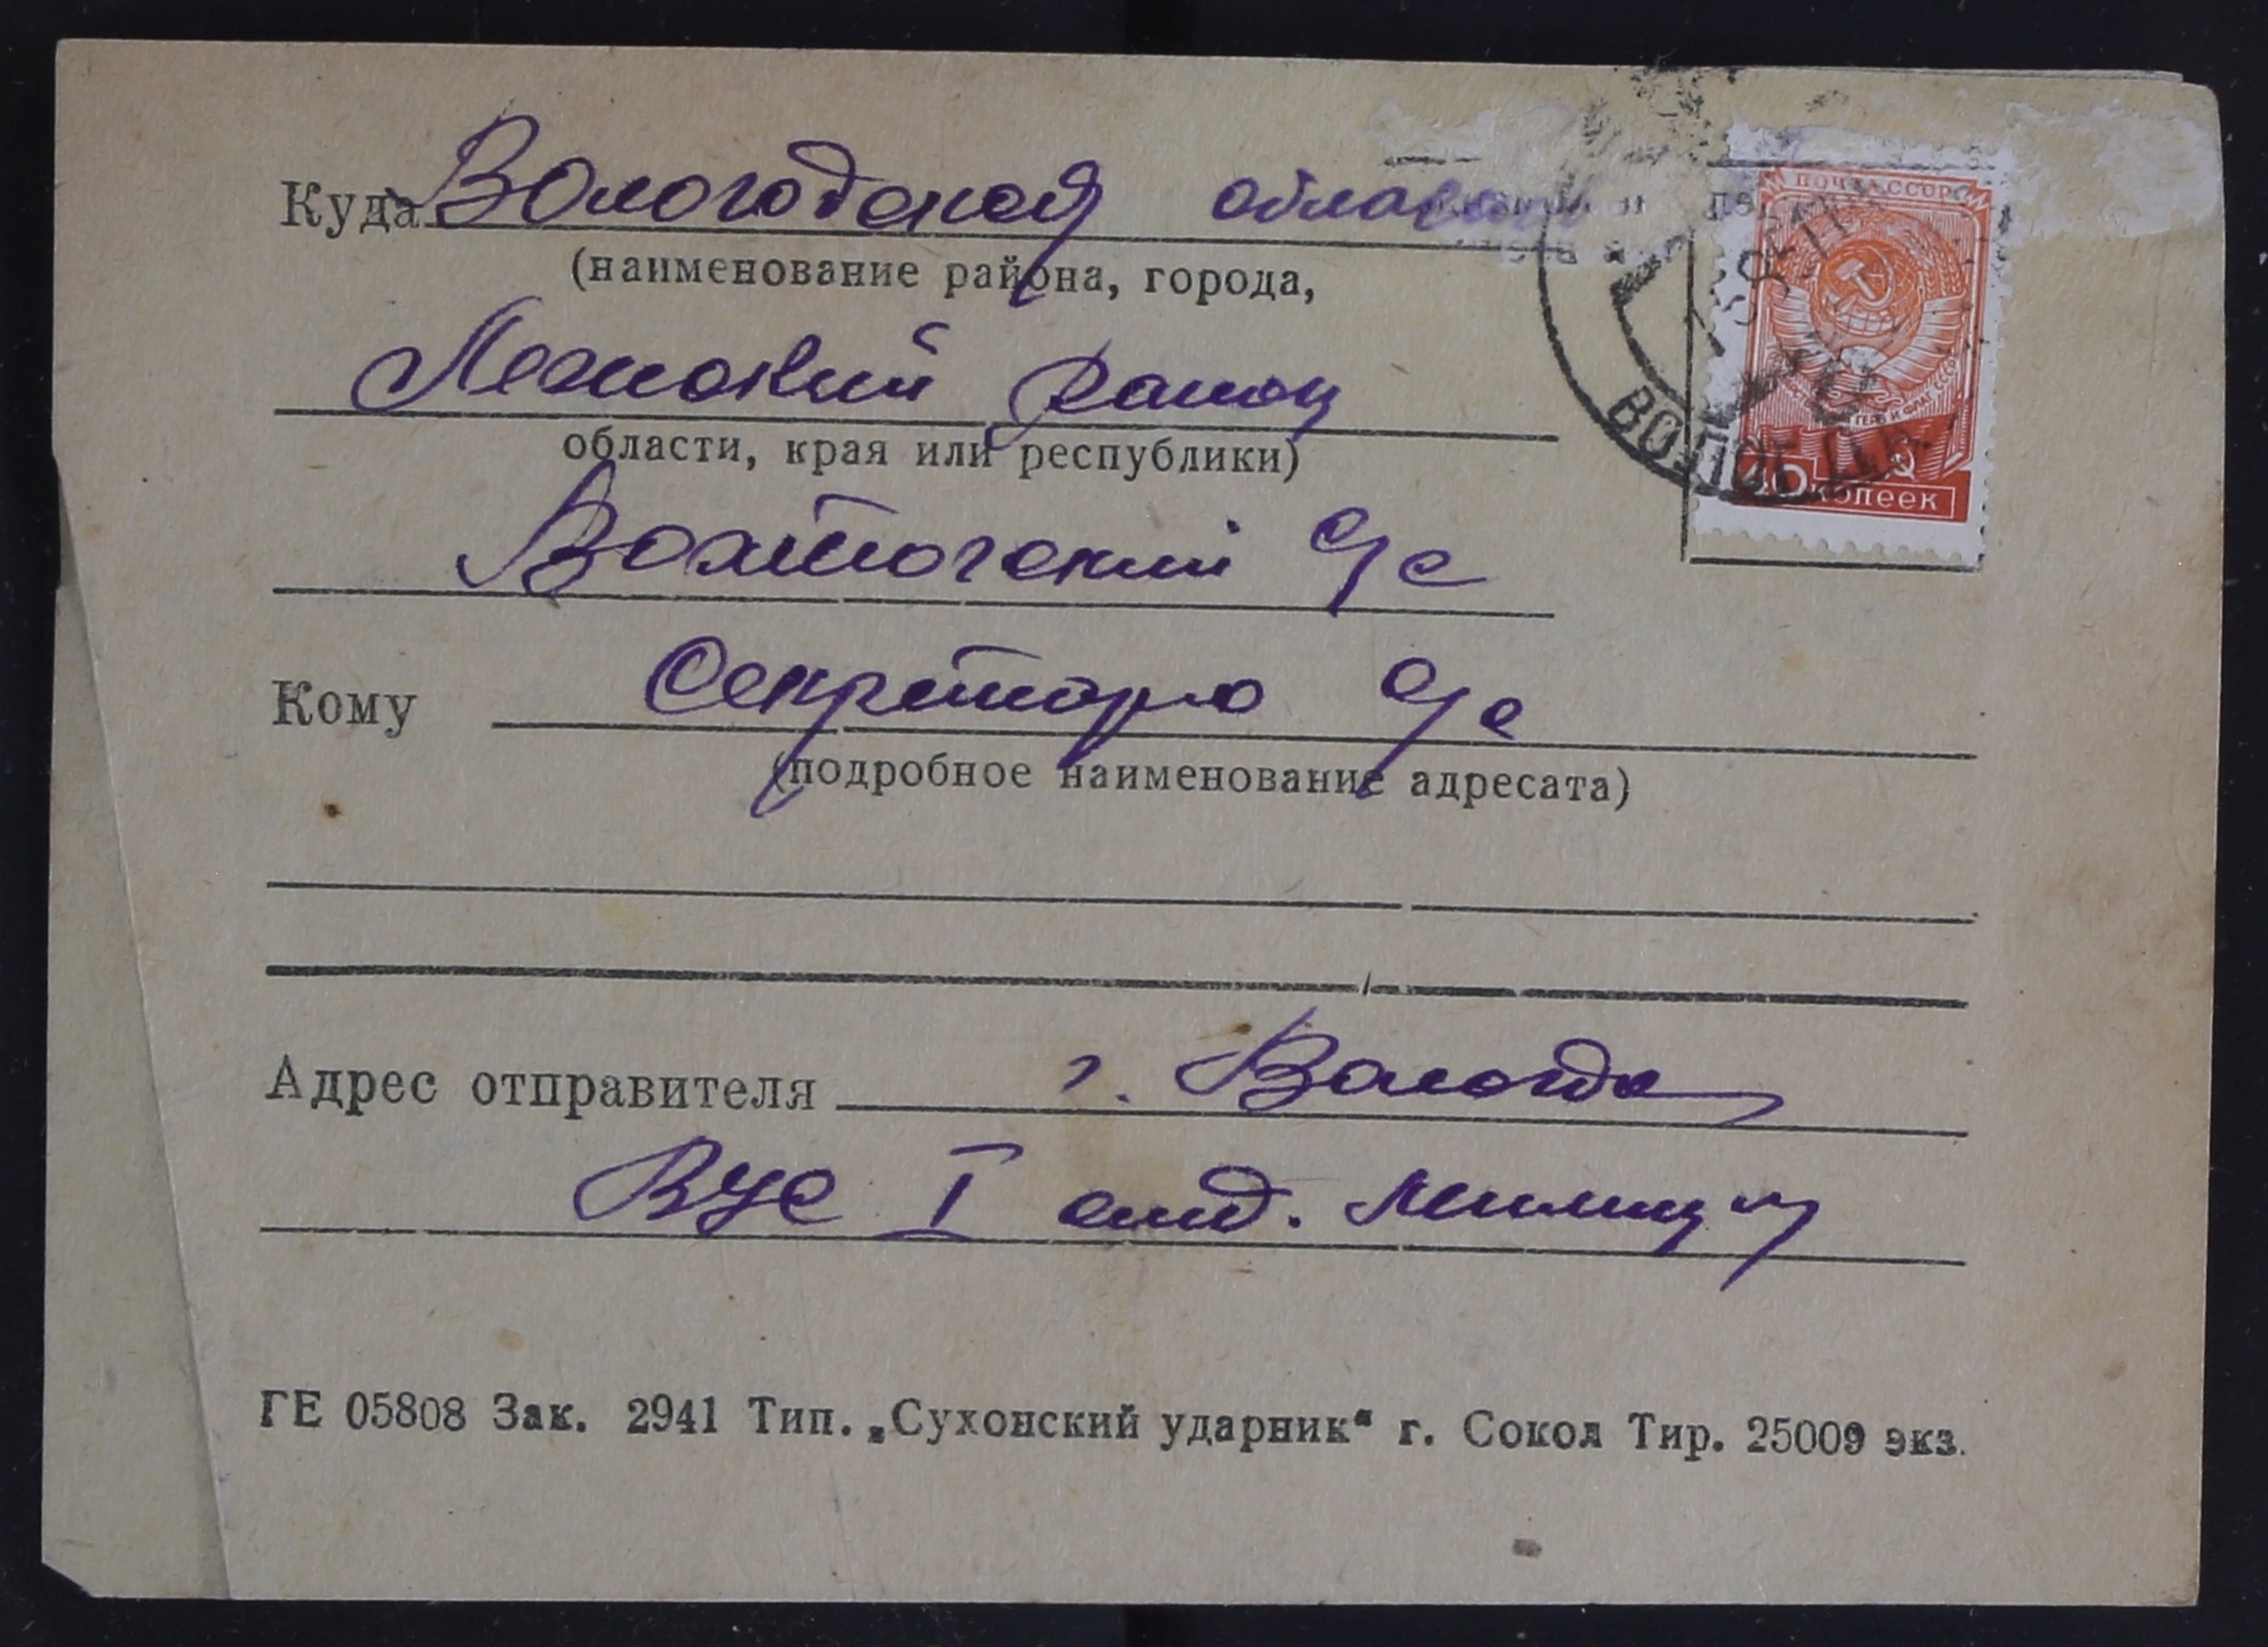 Куда Вологодская область
(наименование района, города,
Лежский район
области, края или республики)
Вохтогский с/с
Кому Секретарю с/с
(подробное наименование адресата)
Адрес отправителя г. Вологда
ВУС I отд. милиции
ГЕ 05808 Зак. 2941 Тип. „Сухонский ударник“ г. Сокол Тир. 25009 экз.
ПОЧТА СССР
40 копеек
ВОЛОГДА